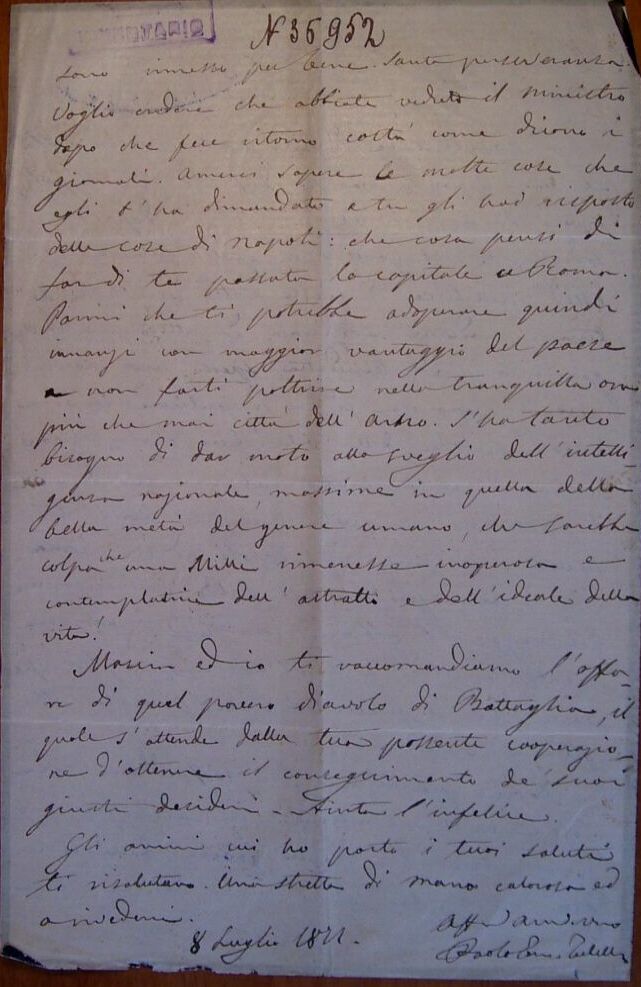 INVENTARIO
N 36952
sono immesso per bene. Santa perseveranza.
Voglio credere che abbiate veduto il ministro
dopo che fece ritorno costà come dicono i
giornali. Amerei sapere le molte cose che
egli t'ha dimandato e tu gli hai risposto
delle cose di Napoli: che cosa pensi di
far di te passata la capitale a Roma.
Parmi che ti potrebbe adoperare quindi
innanzi con maggior vantaggio del paese
e non farti poltrire nella tranquilla ora
più che mai città dell'Arno. S'ha tanto
bisogno di dar moto alla sveglia dell'intelli-
genza nazionale, massime in quella della
bella metà del genere umano, che sarebbe
colpa che una Milli rimanesse inoperosa e
contemplatrice dell'astratto e dell'ideale della
vita!
ed io ti raccomandiamo l'affa-
re di quel povero diavolo di Battaglia, il
quale s'attende dalla tua possente cooperazio-
ne d'ottenere il conseguimento de' suoi
giusti desideri - Aiuta l'infelice.
Gli amici cui ho porto i tuoi saluti
ti risalutano. Una stretta di mano calorosa ed
a rivederci.
8 Luglio 1871.
Paolo Em.